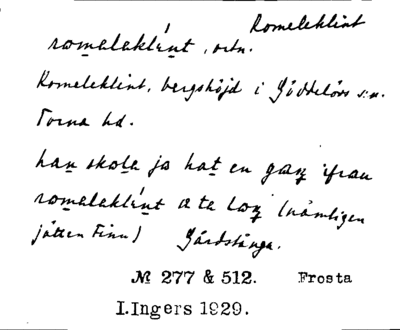 Romeleklint
romalaklint, ortn.
Romeleklint, bergshöjd i Gödelövs s:n.
Torna hd.
han skola ja hat en gaŋ ifrau
romalaklint ata loŋ (nämligen
jätten Finn) Gårdstånga.
№ 277 & 512. Frosta
I.Ingers 1929.